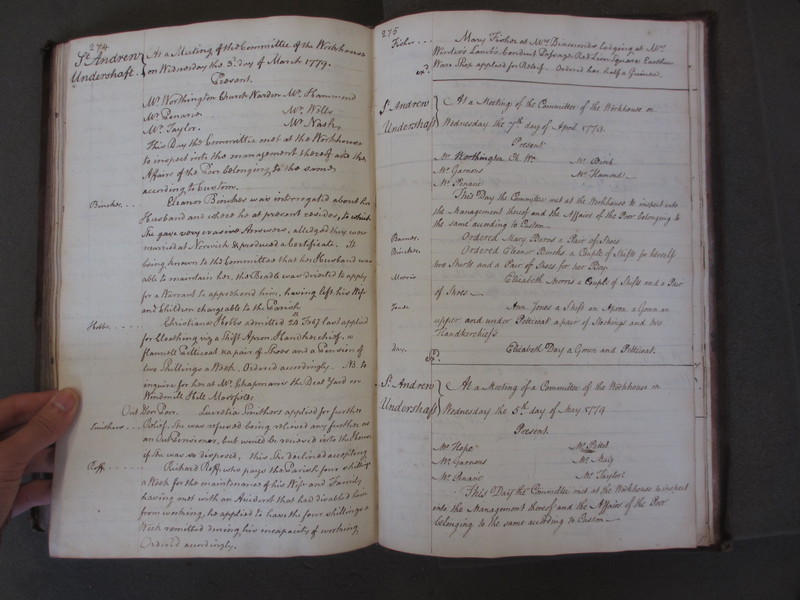 274
St. Andrew
Undershaft.
At a Meeting of the Committee of the Workhouse
on Wednesday the 3d. day of March 1779.
Present.
Mr. Worthington Church Warden Mr. Hammond
Mr. Penane Mr. Wells
Mr. Taylor. Mr. Nash
This Day the Committee met at the Workhouse
to inspect into the management thereof and the
Affairs of the Poor belonging to the same
according to Custom.
Binches Eleanor Binches was interrogated about her
Husband and where he at present resides, to which
She gave very evasive Answers, alledged they were
married at Norwich & produced a Certificate. It
being known to the Committee that her Husband was
able to maintain her, the Beadle was directed to apply
for a Warrant to apprehend him, having left his Wife
and Children chargeable to the Parish
Hobbs Christiana Hobbs admitted 24 Feby last applied
for Cloathing viz a Shift Apron Handkerchief, a
flannell Petticoat & a pair of Shoes and a Pension of
two Shillings a Week. Ordered accordingly. NB. to
inquire for her at Mr. Chapman's the Deal Yard on
Windmill Hill Moorfields
Out Door Poor. Lucretia Smithers applied for further
Smithers Relief. She was refused being relieved any further as
an Out Pensioner, but would be received into the House
if she was so disposed, this She declined accepting
Roff Richard Roff, who pays the Parish four shillings
a Week for the maintenance of his Wife and Family
having met with an Accident that had disabled him
from working, he applied to have the four shillings a
Week remitted during his incapacity of working
Ordered accordingly.
275
Fisher Mary Fisher at Mrs. Diamonds lodging at Mr.
Winders Lamb's Conduit Passage Red Lion Square Earthen
Ware Shop applied for Relief. Ordered her half a Guinea.
exd.
St. Andrew
Undershaft
At a Meeting of the Committee of the Workhouse on
Wednesday the 7th. day of April 1779.
Present
Mr. Worthington Ch. Wn. Mr. Brink
Mr. Garnons Mr. Hamond.
Mr. Penane
This Day the Committee met at the Workhouse to inspect into
the Management thereof and the Affairs of the Poor belonging to
the same according to Custom
Ordered Mary Barns a Pair of Shoes
Binches Ordered Eleanor Binchs a Couple of Shifts for herself
two Shirts and a Pair of Shoes for her Boy.
Morris Elizabeth Morris a Couple of Shifts and a Pair
of Shoes
Jones Ann Jones a Shift an Apron a Gown an
upper and under Petticoat a pair of Stockings and two
Handkerchiefs
Day. Elizabeth Day a Gown and Petticoat.
Exd.
St. Andrew
Undershaft
At a Meeting of a Committee of the Workhouse on
Wednesday the 5th. day of May 1779
Present.
Mr. Hope
Mr. Garnons
Mr. Penane Mr. Taylor
This Day the Committee met at the Workhouse to inspect
into the Management thereof and the Affairs of the Poor
belonging to the same according to Custom